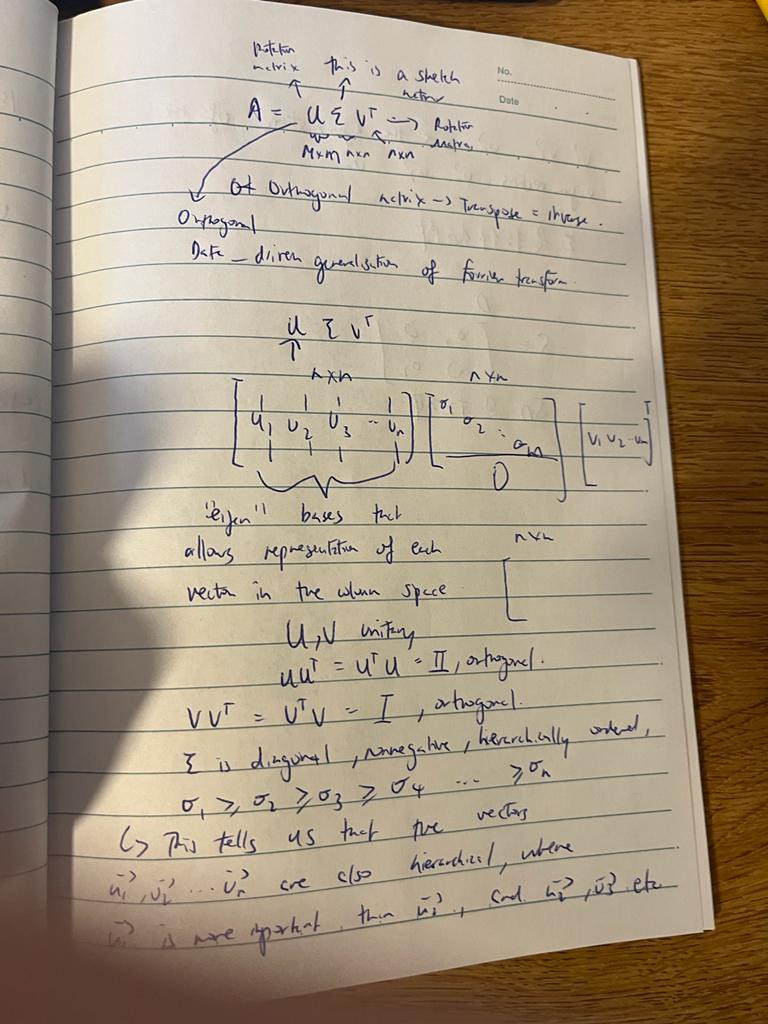 Rotation
matrix this is a sketch
matrix
No.
Date
A = U Σ Vᵀ → Rotation
matrix
m×m n×n n×n
Orthogonal matrix → Transpose = inverse.
Orthogonal
Data-driven generalisation of fourier transform.
U Σ Vᵀ
↑
n×n n×n
[u₁ u₂ u₃ ... uₙ] [σ₁ σ₂ ... σₘ 0] [v₁ v₂ ... vₘ]ᵀ
"eigen" bases that
allows representation of each
n×n
vector in the column space
U, V unitary
UUᵀ = UᵀU = I, orthogonal.
VVᵀ = VᵀV = I, orthogonal.
Σ is diagonal, nonnegative, hierarchically ordered,
σ₁ ≥ σ₂ ≥ σ₃ ≥ σ₄ ... ≥ σₙ
↳ This tells us that the vectors
u₁, u₂ ... uₙ are also hierarchical, where
u₁ is more important than u₂, and u₂, u₃ etc